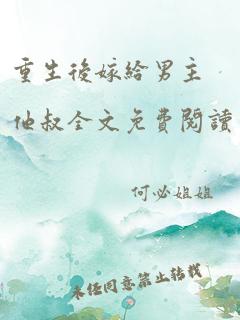 重生後嫁給男主
他叔全文免費閱讀
何必姐姐
未經同意禁止轉載